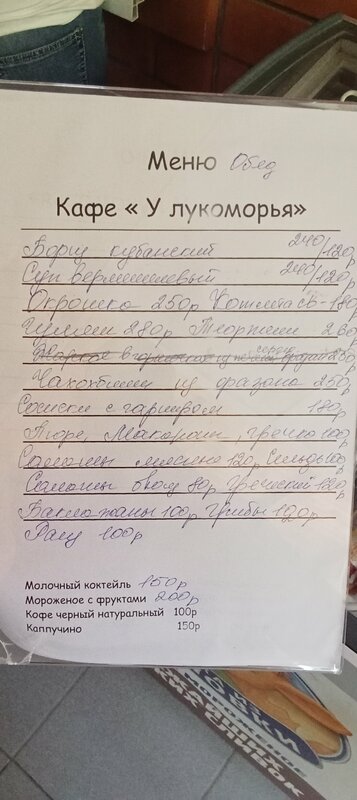 Меню Обед
Кафе « У лукоморья»
Борщ кубанский 240/120р
Суп вермишелевый 240/120р
Окрошка 250р Котлета св-180р
Гуляш 280р 260р
250р
Чахохбили из фазана 250р
Сосиски с гарниром 180р
Пюре, Макароны, гречка 100р
Салаты мясные 120р Сельдь 100р
Салаты 80р Греческий 120р
Баклажаны 100р Грибы 120р
Рагу 100р
Молочный коктейль 150р
Мороженое с фруктами 200р
Кофе черный натуральный 100р
Каппучино 150р